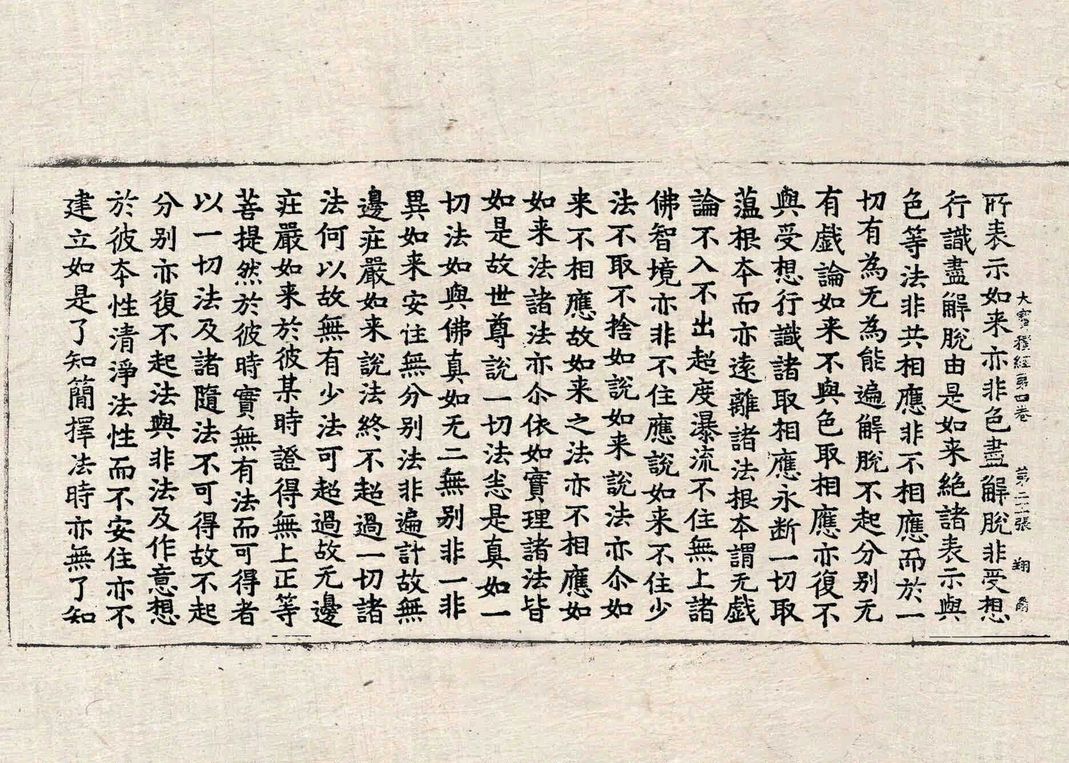 大寶積經第四卷 張 翔
所表示如来亦非色盡解脫非受想
行識盡解脫由是如来絶諸表示與
色等法非共相應非不相應而於一
切有為无為能遍解脫不起分别无
有戲論如来不與色取相應亦復不
與受想行識諸取相應永断一切取
薀根夲而亦遠離諸法根本謂无戲
論不入不出超度瀑流不住無上諸
佛智境亦非不住應說如来不住少
法不取不捨如說如来說法亦尒如
来不相應故如来之法亦不相應如
如来法諸法亦尒依如實理諸法皆
如是故世尊說一切法悉是真如一
切法如與佛真如无二無别非一非
異如来安住無分别法非遍計故無
邊莊嚴如来說法終不超過一切諸
法何以故無有少法可超過故无邊
莊嚴如来於彼某時證得無上正等
菩提然於彼時實無有法而可得者
以一切法及諸隨法不可得故不起
分别亦復不起法與非法及作意想
於彼夲性清淨法性而不安住亦不
建立如是了知簡擇法時亦無了知